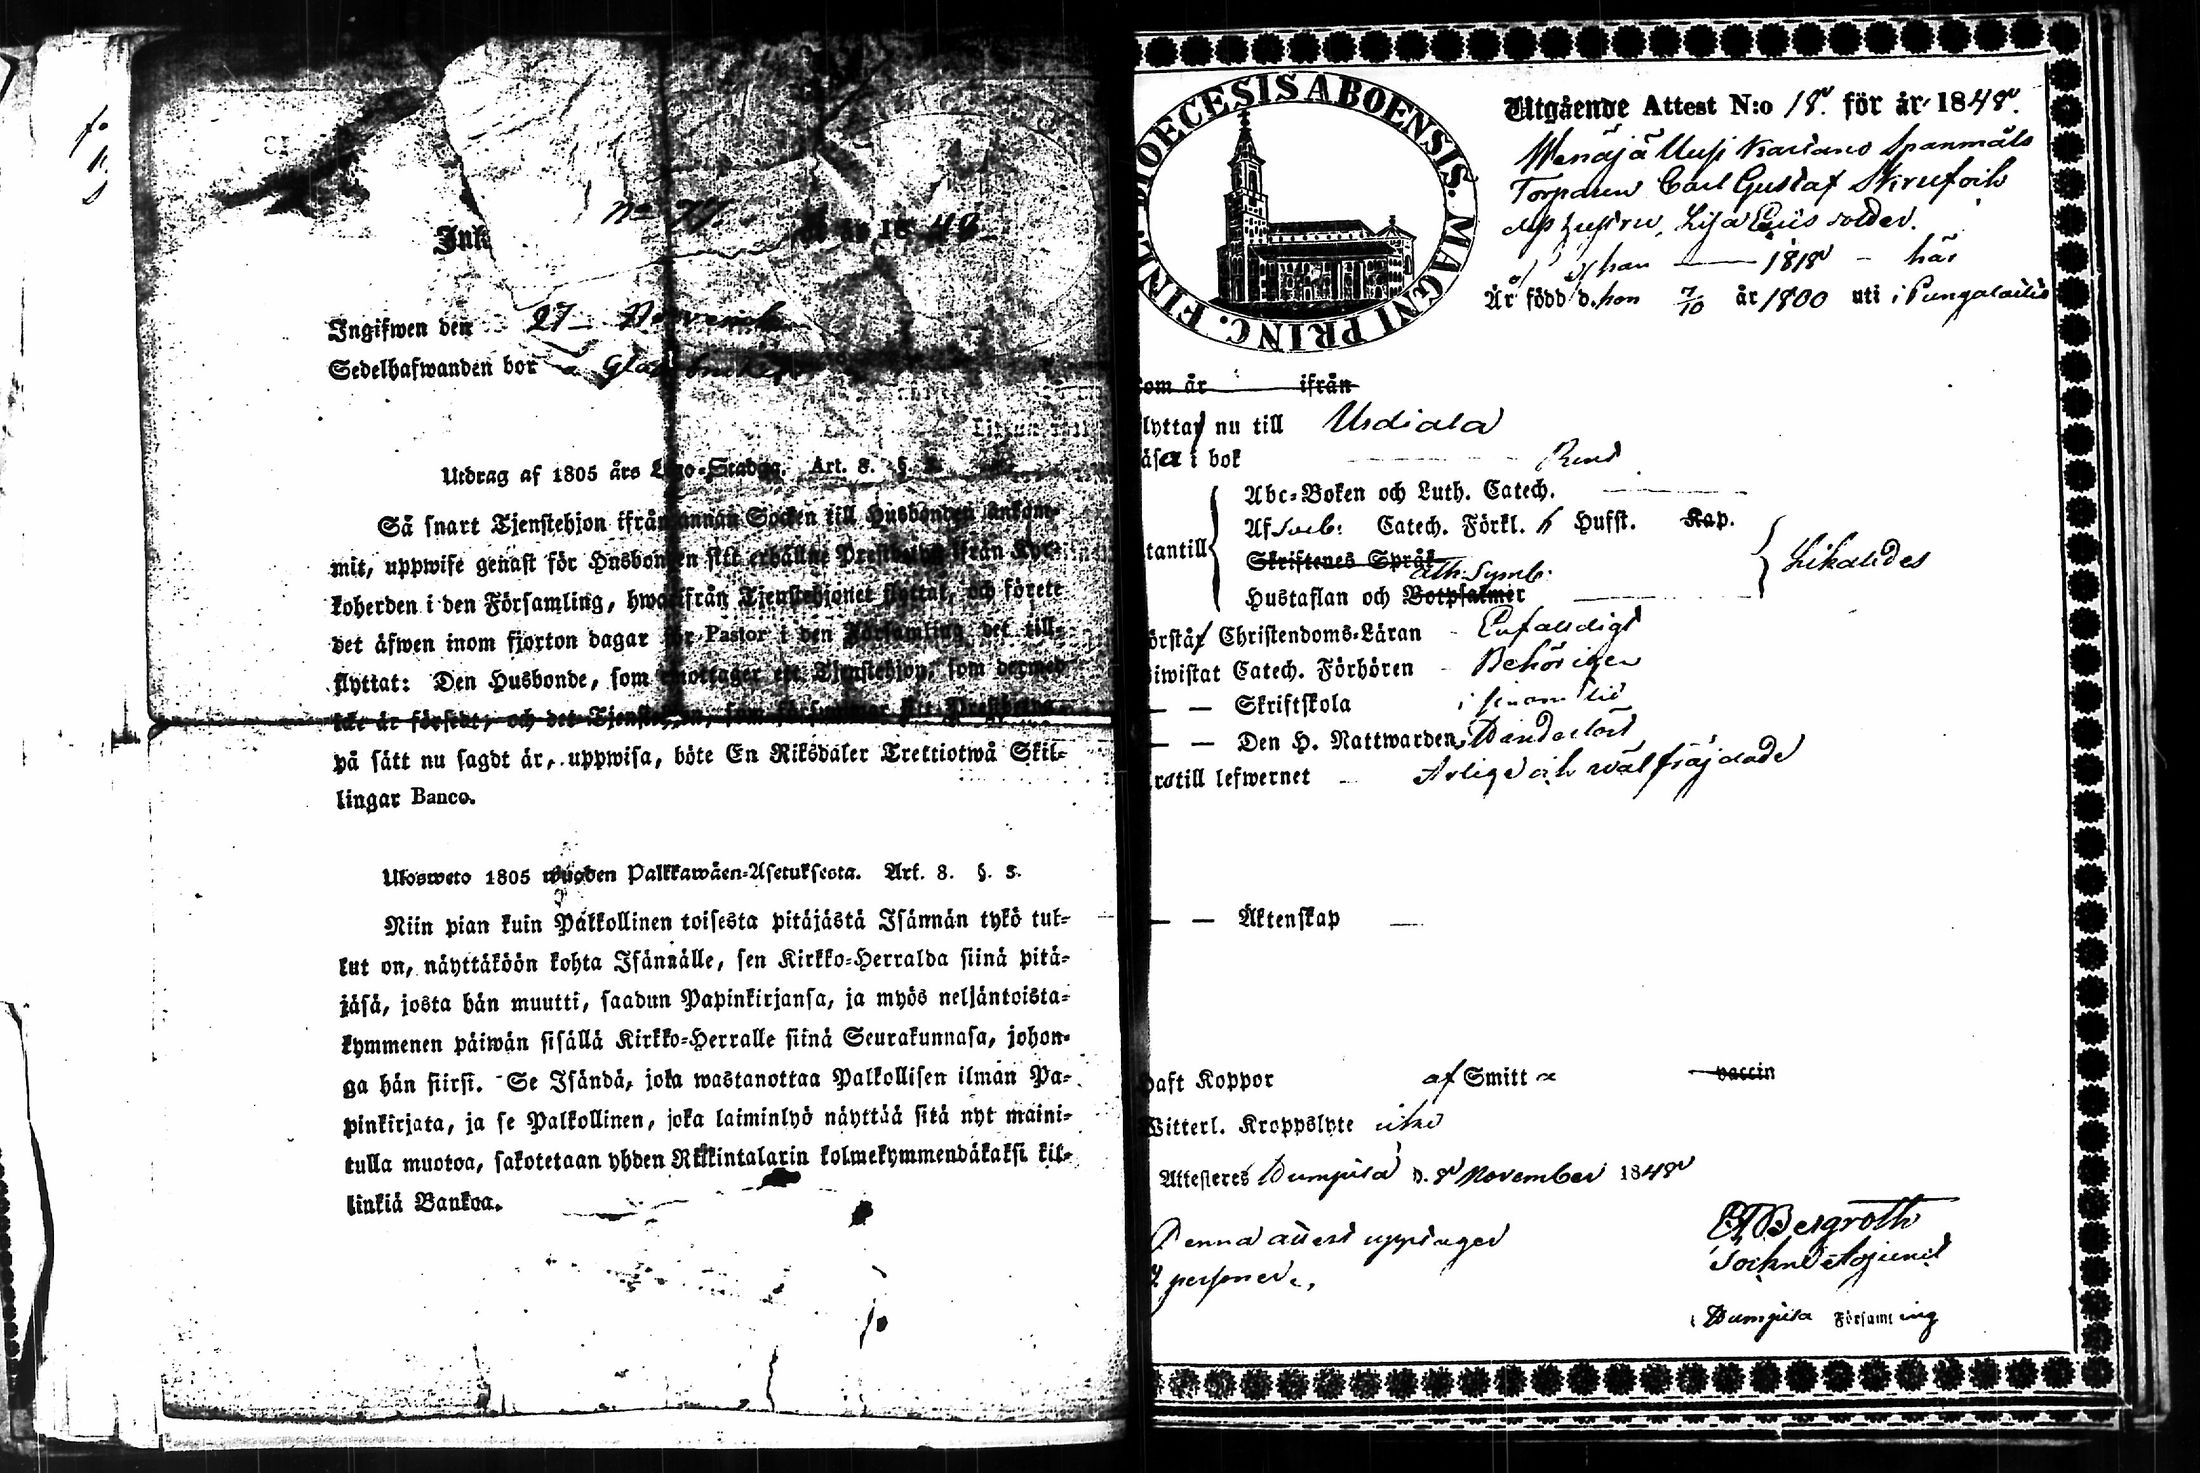 No 77. 1848
Ingifwen den 27 Novemb.
Sedelhafwanden bor å
Utdrag af 1805 års Lego-Stadga. Art. 8. §.
Så snart Tjenstehjon ifrån annan Socken till Husbonden ankom-
mit, uppwise genast för Husbonden sitt erhållne Prestbetyg ifrån Kyr-
koherden i den Församling, hwarifrån Tjenstehjonet flyttat, och förete
det äfwen inom fjorton dagar för Pastor i den Församling det till-
flyttat: Den Husbonde, som emottager ett Tjenstehjon, som dermed
icke är försedt, och det Tjenstehjon, som försummar sitt Prestbetyg,
på sätt nu sagdt är, uppwisa, böte En Riksdaler Trettiotwå Skil-
lingar Banco.
Ulosweto 1805 wuoden Palkkawäen-Asetuksesta. Art. 8. §. 3.
Niin pian kuin Palkollinen toisesta pitäjästä Isännän tykö tul-
lut on, näyttäköön kohta Isännälle, sen Kirkko-Herralda siinä pitä-
jäsä, josta hän muutti, saadun Papinkirjansa, ja myös neljäntoista-
kymmenen päiwän sisällä Kirkko-Herralle siinä Seurakunnasa, johon-
ga hän siirsi. Se Isändä, joka wastanottaa Palkollisen ilman Pa-
pinkirjata, ja se Palkollinen, joka laiminlyö näyttää sitä nyt maini-
tulla muotoa, sakotetaan yhden Riikintalarin kolmekymmendäkaksi kil-
linkiä Bankoa.
DIOECESIS ABOENSIS. MAGNI PRINC. FINL.
Utgående Attest N:o 18. för år 1848.
Wenäjä Uusi Spanmåls
Torparen Carl Gustaf och
dess hustru, Lisa
han 1818 här
Är född d. hon 7/10 år 1800 uti i Pungalaitio
som är ifrån
flyttar nu till Urdiala
läsa i bok Rent
utantill
Abc-Boken och Luth. Catech.
Af Catech. Förkl. Hufst. Kap.
Skriftenes Språk
Ath. Symb.
Hustaflan och Botpsalmer
Likaledes
förstår Christendoms-Läran Enfaldigt
biwistat Catech. Förhören Behörigen
— — Skriftskola i sinom tid
— — Den H. Nattwarden
till lefwernet Ärlige och wälfräjdade
— — Äktenskap —
haft Koppor af Smitta vaccin
Witterl. Kroppslyte icke
Attesteres Wampula d. 8 November 1848
Denna attest upptager
2 personer.
Bergroth
Sockne Adjunct
i Wampula Församling